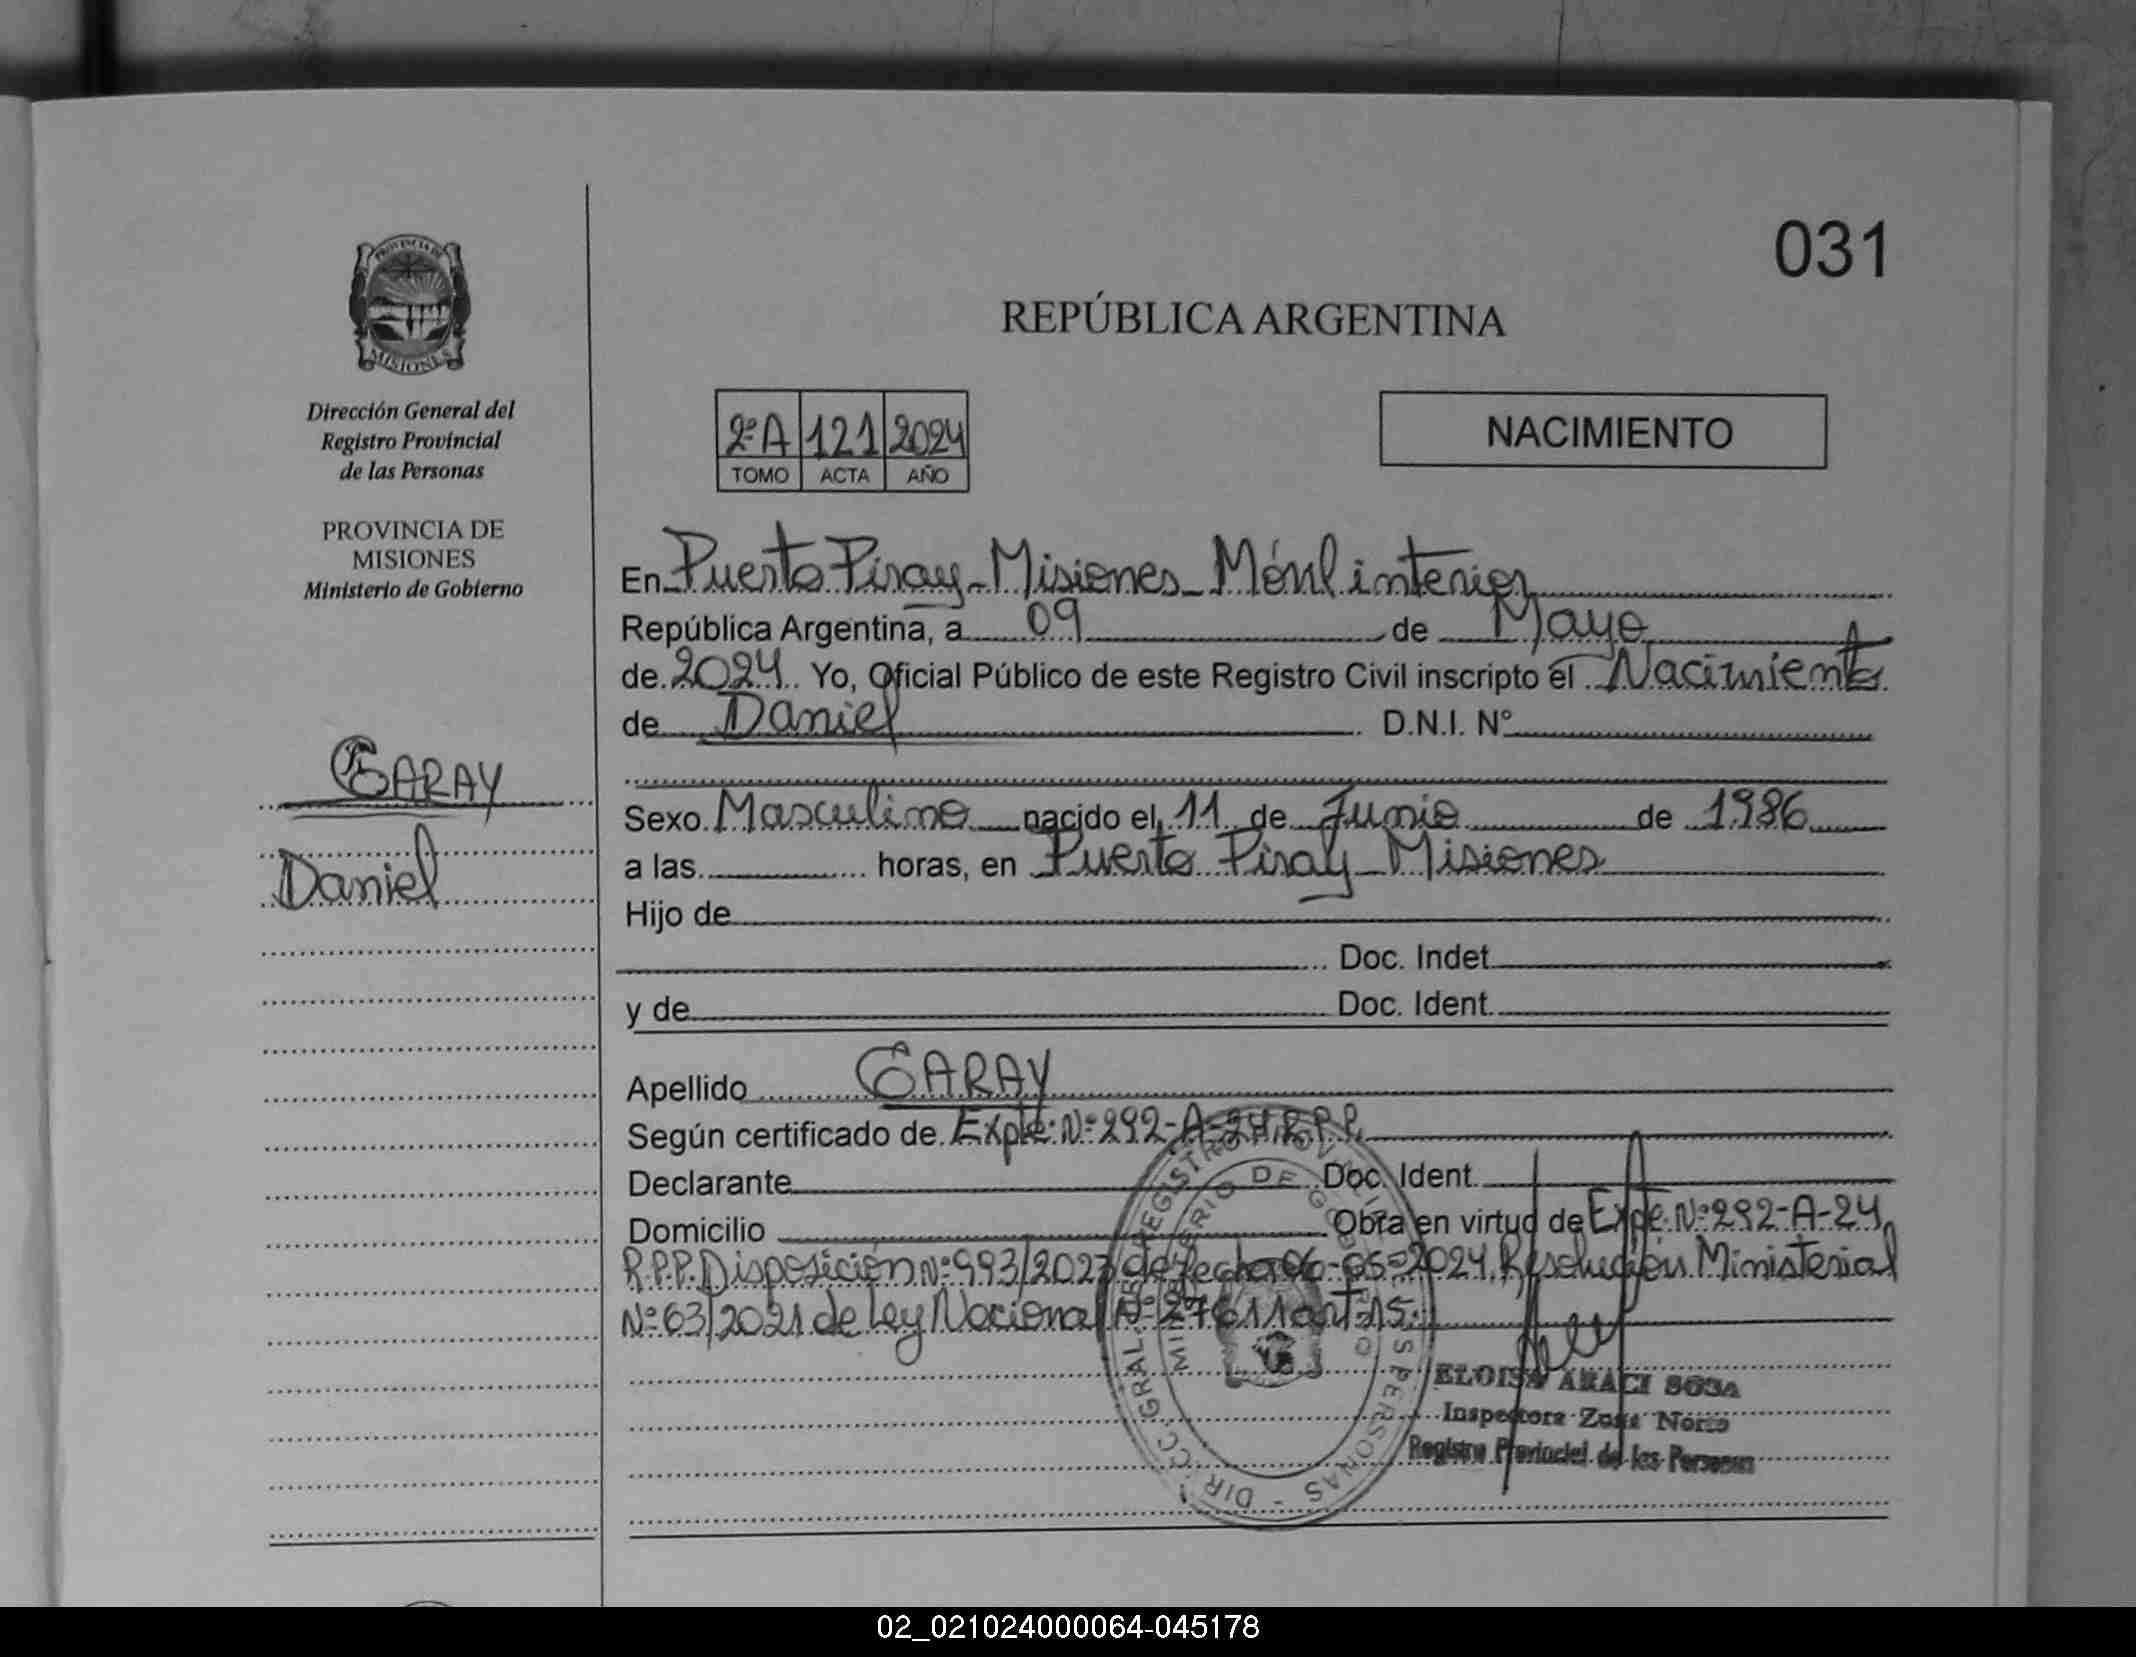 031
REPÚBLICA ARGENTINA
PROVINCIA DE
MISIONES
Dirección General del
Registro Provincial
de las Personas
PROVINCIA DE
MISIONES
Ministerio de Gobierno
GARAY
Daniel
2ºA 121 2024
TOMO ACTA AÑO
NACIMIENTO
En Puerto Piray - Misiones - Móvil interior
República Argentina, a 09 de Mayo
de 2024 Yo, Oficial Público de este Registro Civil inscripto el Nacimiento
de Daniel D.N.I. Nº
Sexo Masculino nacido el 11 de Junio de 1986
a las horas, en Puerto Piray - Misiones
Hijo de
Doc. Indet.
y de Doc. Ident.
Apellido GARAY
Según certificado de Expte: Nº 292-A-24, R.P.P.
Declarante Doc. Ident.
Domicilio Obra en virtud de Expte. Nº 292-A-24
R.P.P. Disposición Nº 993/2023 de fecha 06-05-2024. Resolución Ministerial
Nº 63/2021 de Ley Nacional Nº 27611 art-15.
ELOISA ARACI SOSA
Inspectora Zona Norte
Registro Provincial de las Personas
MINISTERIO DE GOBIERNO
02_021024000064-045178